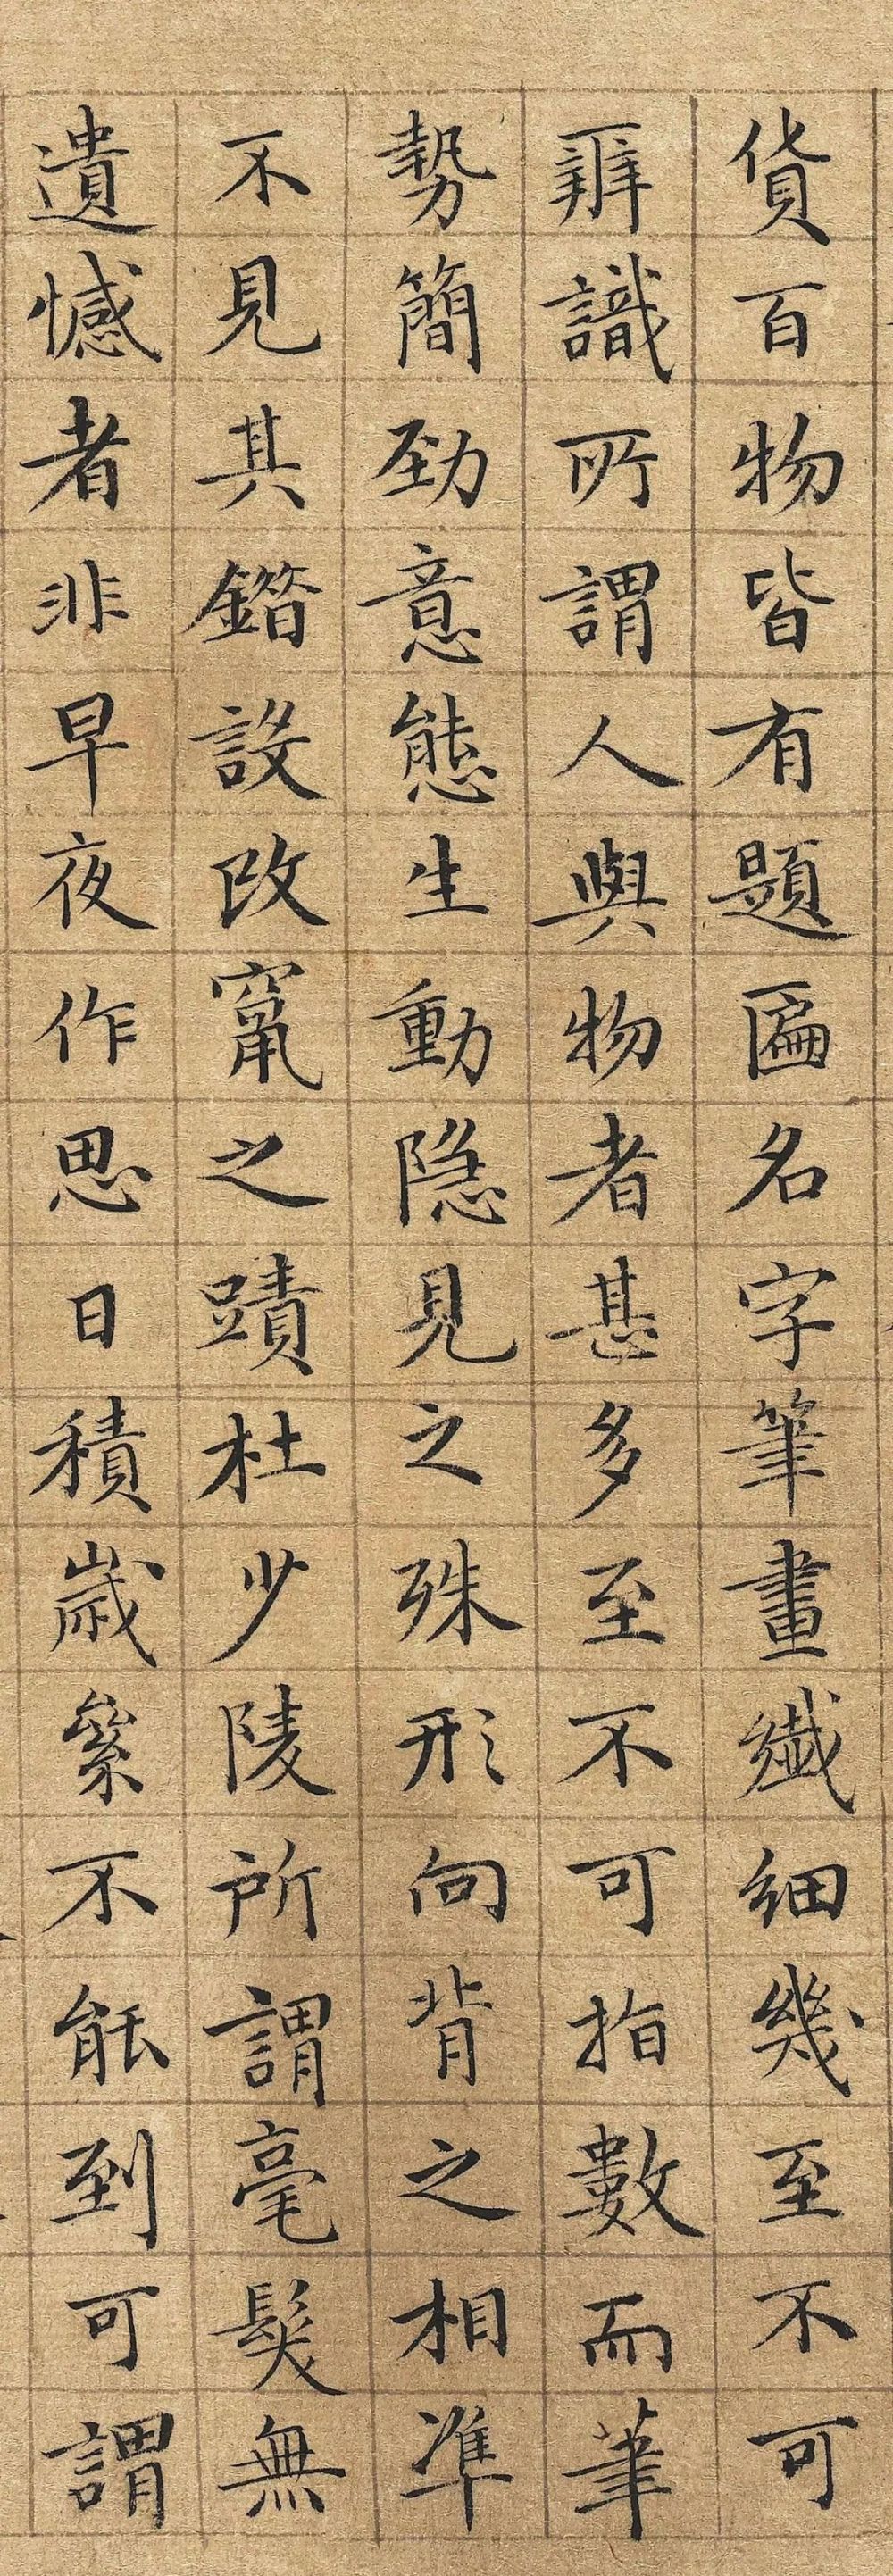 貨百物皆有題匾名字筆畫纖細幾至不可
辨識所謂人與物者甚多至不可指數而筆
勢簡勁意態生動隐見之殊形向背之相準
不見其鐕設改竄之蹟杜少陵所謂毫髮無
遺憾者非早夜作思日積歲絫不能到可謂